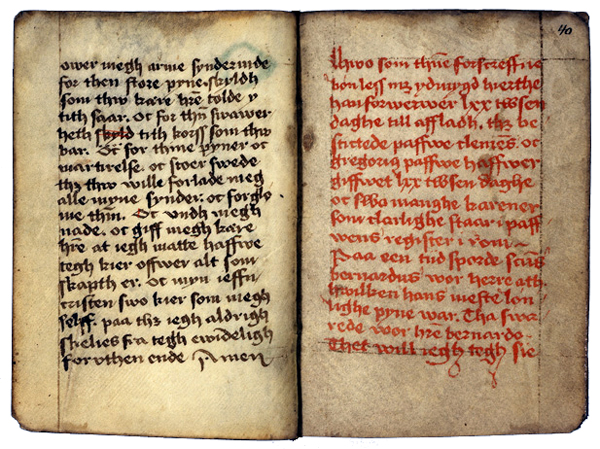 ower megh arme synderinde
for then store pyne. skyldh
som thw kære hrē tolde y
tith saar. Oc for thn̄ swawer
heth skyld tith korss som thw
bar. Oc for thine pyner oc
martirelse. oc stoer swede
thz thw wille forlade meg
alle myne synder. oc forgly
me thm̄. Oc vndh megh
nade. oc giff megh kære
hrē at iegh matte haffwe
tegh kier offwer alt som
skapth er. Oc myn ieffn
cristen swo kier som megh
selff. paa thz iegh aldrigh
skelies fra tegh ewindeligh
for vthen ende Amen
40
Hwo som thn̄e forscreffne
bøn less mz ydmygd hierthe
han forwerwer lxx twsen
daghe till affladh. thz be
stictede paffwe clemēs. oc
gregorius paffwe haffwer
giffwet lxx twsen daghe
oc swo manghe karener
som clarlighe staar i paff
wens register i rom
Paa een tiid sporde scūs
bernardus wor herre ath.
hwilken hans meste løn
lighe pyne war. Tha swa
rede woor hrē bernardo
Thet will iegh tegh sie